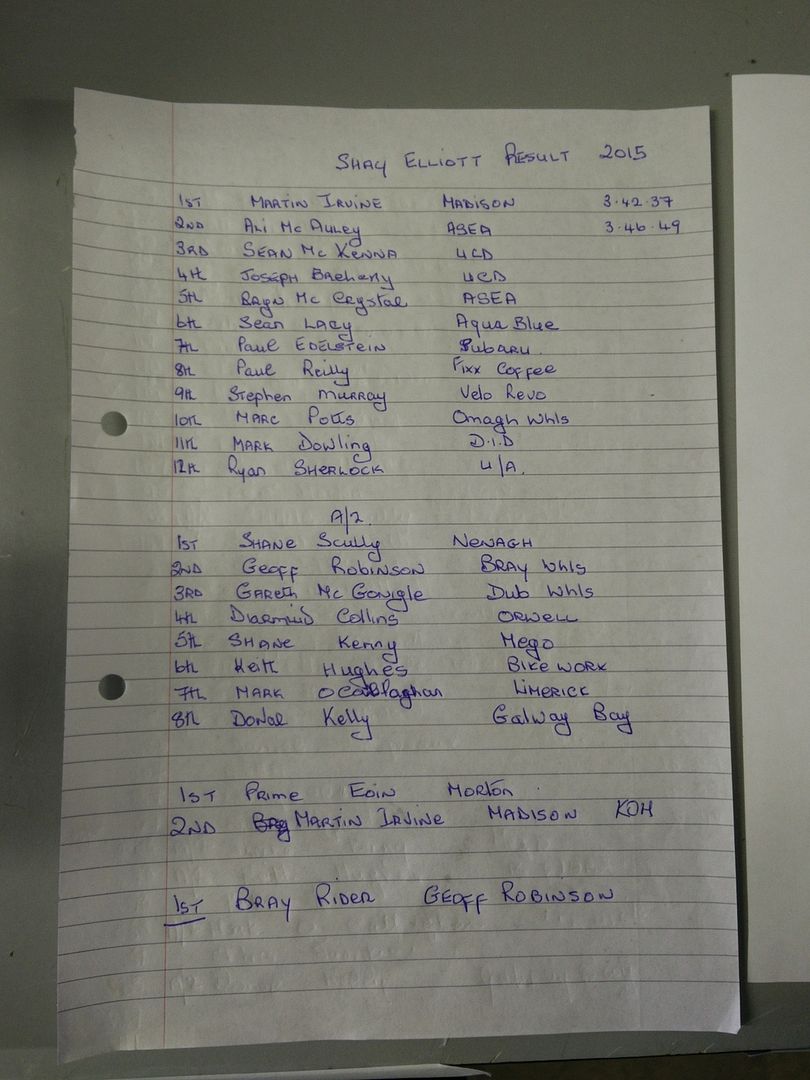 SHAY ELLIOTT RESULT 2015
1ST MARTIN IRVINE MADISON 3.42.37
2ND ALI Mc AULEY ASEA 3.46.49
3RD SEAN Mc KENNA UCD
4th JOSEPH Breheny UCD
5th Bryn Mc Crystal ASEA
6th Sean LACY Aqua Blue
7th Paul EDELSTEIN Subaru.
8th Paul Reilly Fixx Coffee
9th Stephen MURRAY Velo Revo
10th MARC Potts Omagh Whls
11th MARK Dowling D.I.D
12th Ryan SHERLOCK U/A.
A/2.
1ST SHANE Scully NENAGH
2ND GEOFF ROBINSON BRAY Whls
3RD GARETH Mc Gonigle Dub Whls
4th Diarmuid Collins ORWELL
5th SHANE Kenny Mego
6th Keith Hughes BIKE WORX
7th MARK O Callaghan LIMERICK
8th Donal Kelly Galway Bay
1ST PRIME EOIN MORTON
2ND MARTIN IRVINE MADISON KOH
1ST BRAY RIDER GEOFF ROBINSON